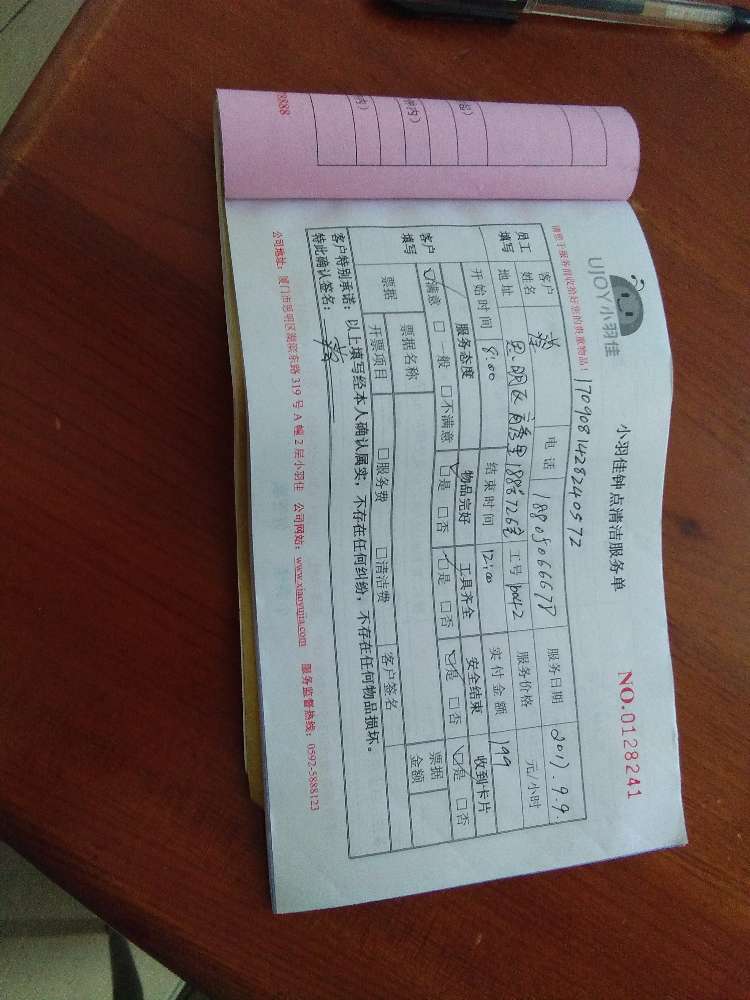 UJOY小羽佳
小羽佳钟点清洁服务单
NO.0128241
请您于服务前收拾好您的贵重物品!
1709081428240572
员工填写
客户姓名
电话 18805066678
服务日期 2017.9.9.
地址 思明区
工号
服务价格 元/小时
开始时间 8:00
结束时间 12:00
实付金额 199
客户填写
服务态度 物品完好 工具齐全 安全结束 收到卡片
☑满意 □一般 □不满意 ☑是 □否 ☑是 □否 ☑是 □否 ☑是 □否
票据
票据名称
客户签名
票据金额
开票项目 □服务费 □清洁费
客户特别承诺:以上填写经本人确认属实,不存在任何纠纷,不存在任何物品损坏。
特此确认签名:
公司地址:厦门市思明区湖滨东路319号A幢2层小羽佳 公司网站:www.xiaoyujia.com 服务监督热线:0592-5888123